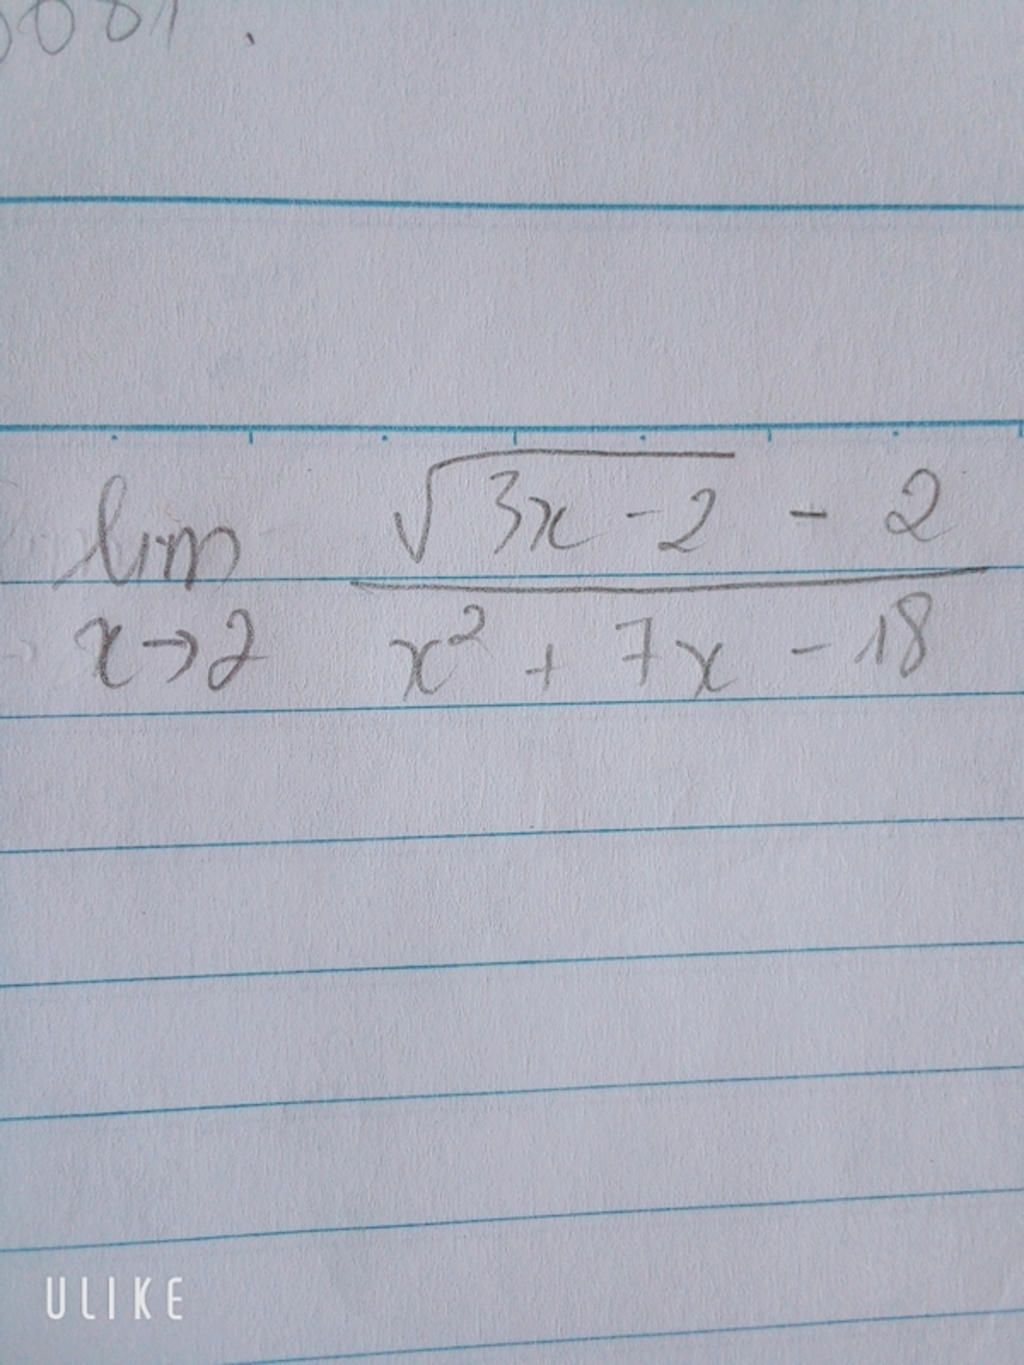 lim √(3x - 2) - 2
x→2 x² + 7x - 18
ULIKE